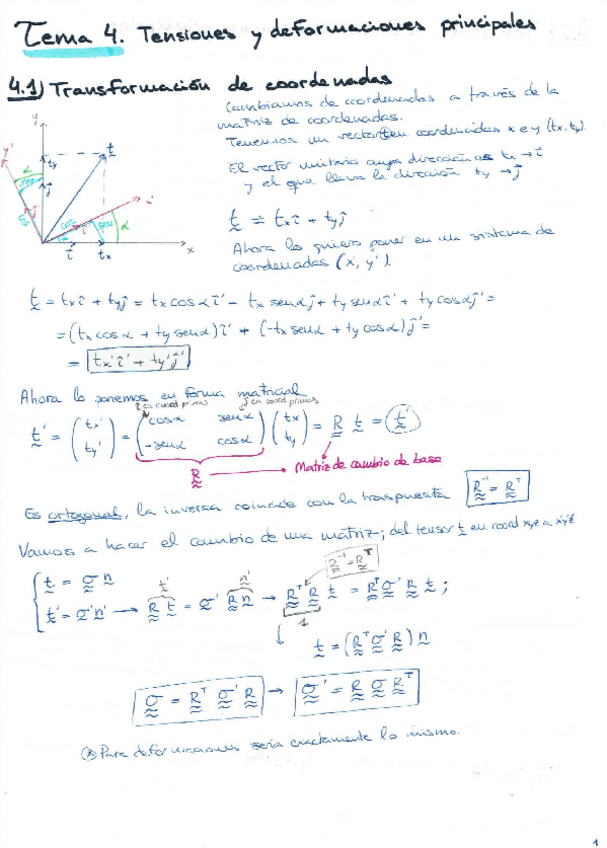 Tema 4. Tensiones y deformaciones principales
4.1) Transformación de coordenadas
Cambiamos de coordenadas a través de la
matriz de coordenadas.
Tenemos un vector t en coordenadas x e y (tx, ty).
El vector unitario cuya dirección es tx → î
y el que lleva la dirección ty → ĵ
t = tx î + ty ĵ
Ahora lo quiero poner en un sistema de
coordenadas (x', y').
y y' t ty j α cos sen i' i tx x
t = tx î + ty ĵ = tx cos α î' - tx sen α ĵ' + ty sen α î' + ty cos α ĵ' =
= (tx cos α + ty sen α) î' + (-tx sen α + ty cos α) ĵ' =
= tx' î' + ty' ĵ'
Ahora lo ponemos en forma matricial
i en coord primas j en coord primas
t' = (tx' ty') = (cos α sen α -sen α cos α) (tx ty) = R t = t'
R → Matriz de cambio de base
Es ortogonal, la inversa coincide con la traspuesta R⁻¹ = Rᵀ
Vamos a hacer el cambio de una matriz; del tensor t en coord xyz a x'y'z'
R⁻¹ = Rᵀ
t = σ n
t' n'
t' = σ' n' → R t = σ' R n → Rᵀ R t = Rᵀ σ' R t ;
1
t = (Rᵀ σ' R) n
σ = Rᵀ σ' R → σ' = R σ Rᵀ
(*) Para deformaciones sería exactamente lo mismo.
1